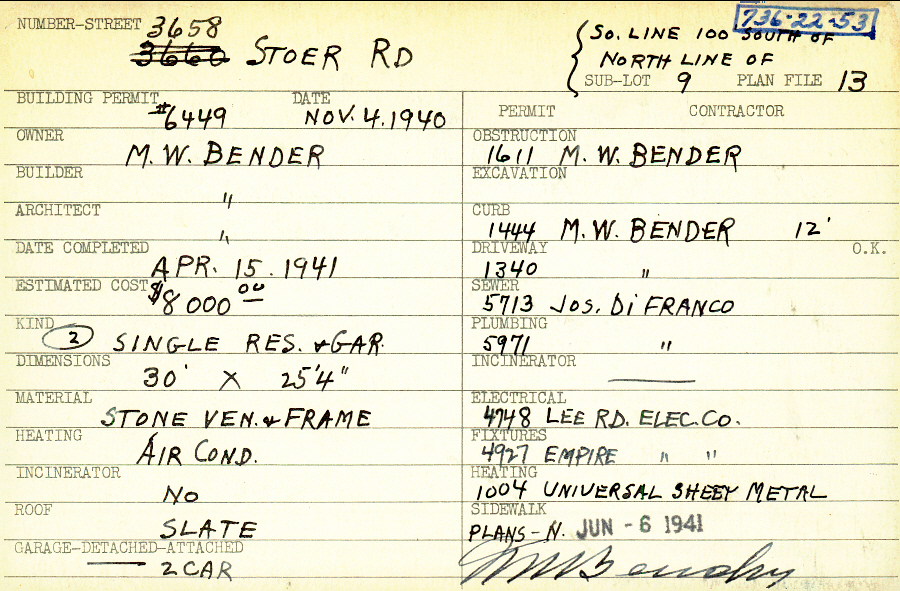 NUMBER-STREET 3658
3660 STOER RD
736-22-53
SO. LINE 100' SOUTH OF
NORTH LINE OF
SUB-LOT 9 PLAN FILE 13
BUILDING PERMIT #6449 DATE NOV. 4. 1940
OWNER M. W. BENDER
BUILDER "
ARCHITECT "
DATE COMPLETED APR. 15. 1941
ESTIMATED COST $8000 00
KIND 2 SINGLE RES. & GAR.
DIMENSIONS 30' X 25'4"
MATERIAL STONE VEN. & FRAME
HEATING AIR COND.
INCINERATOR NO
ROOF SLATE
GARAGE-DETACHED-ATTACHED 2 CAR
PERMIT CONTRACTOR
OBSTRUCTION 1611 M. W. BENDER
EXCAVATION
CURB 1444 M. W. BENDER 12'
DRIVEWAY 1340 " O.K.
SEWER 5713 JOS. DI FRANCO
PLUMBING 5971 "
INCINERATOR
ELECTRICAL 4748 LEE RD. ELEC. CO.
FIXTURES 4927 EMPIRE " "
HEATING 1004 UNIVERSAL SHEET METAL
SIDEWALK
PLANS-N. JUN - 6 1941